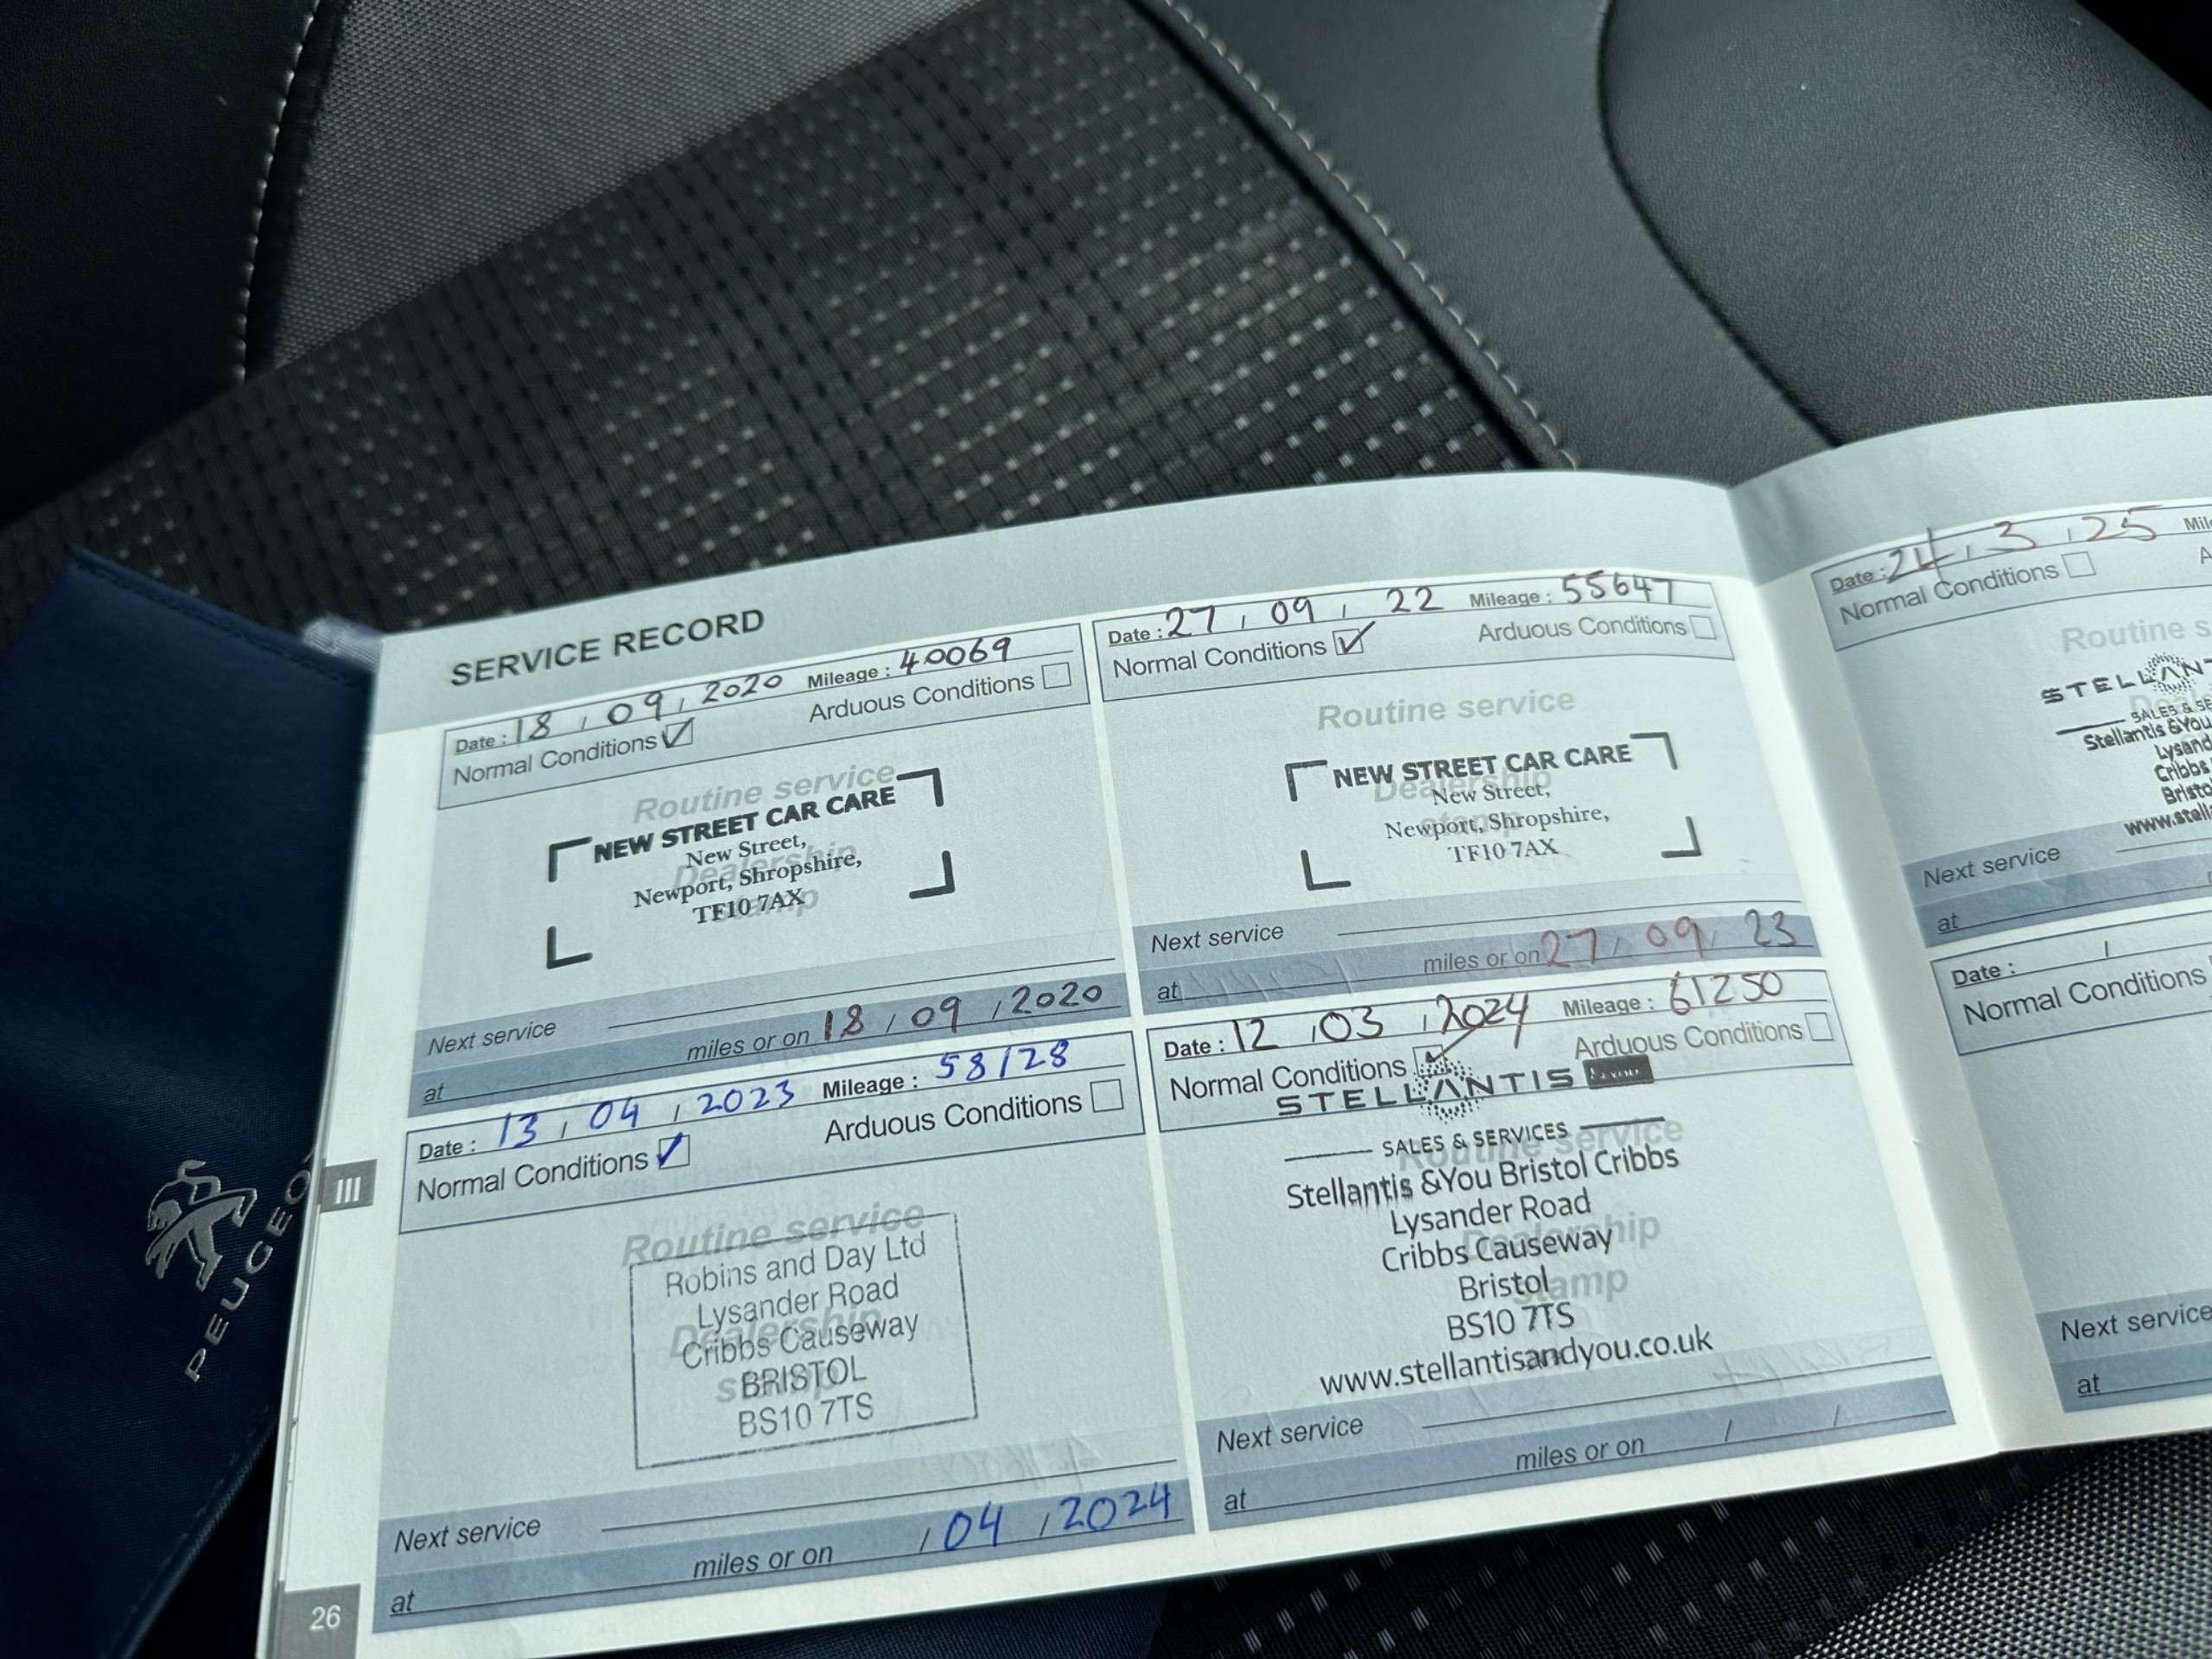 SERVICE RECORD
Date : 18 / 09 / 2020 Mileage : 40069
Normal Conditions Arduous Conditions
Routine service
NEW STREET CAR CARE
New Street,
Dealership
Newport, Shropshire,
TF10 7AX
stamp
Next service
at miles or on 18 / 09 / 2020
Date : 27 / 09 / 22 Mileage : 55647
Normal Conditions Arduous Conditions
Routine service
NEW STREET CAR CARE
Dealership
New Street,
Newport, Shropshire,
stamp
TF10 7AX
Next service
at miles or on 27 / 09 / 23
Date : 13 / 04 / 2023 Mileage : 58128
Normal Conditions Arduous Conditions
Routine service
Robins and Day Ltd
Lysander Road
Dealership
Cribbs Causeway
stamp
BRISTOL
BS10 7TS
Next service
at miles or on / 04 / 2024
Date : 12 / 03 / 2024 Mileage : 61250
Normal Conditions Arduous Conditions
STELLANTIS &YOU
SALES & SERVICES
Routine service
Stellantis &You Bristol Cribbs
Lysander Road
Dealership
Cribbs Causeway
Bristol
stamp
BS10 7TS
www.stellantisandyou.co.uk
Next service
at miles or on / /
III
26
PEUGEO
Date : 24 / 3 / 25
Normal Conditions
Routine s
STELLANT
SALES & SE
Stellantis &You
Lysand
Cribbs
Bristo
www.stell
Next service
at
Date : /
Normal Conditions
Next service
at